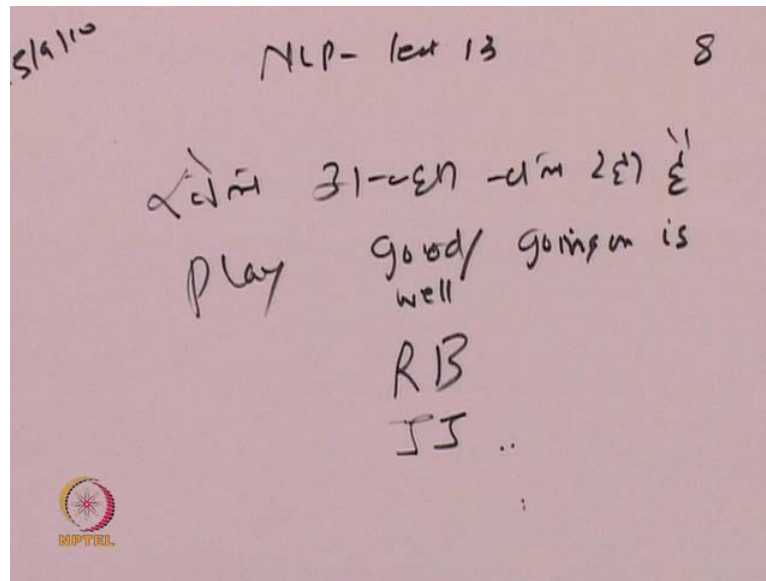 5/9/10 NLP- lect 13 8
खेल अच्छा चल रहा है
Play good/ going on is
well
RB
JJ ..
NPTEL